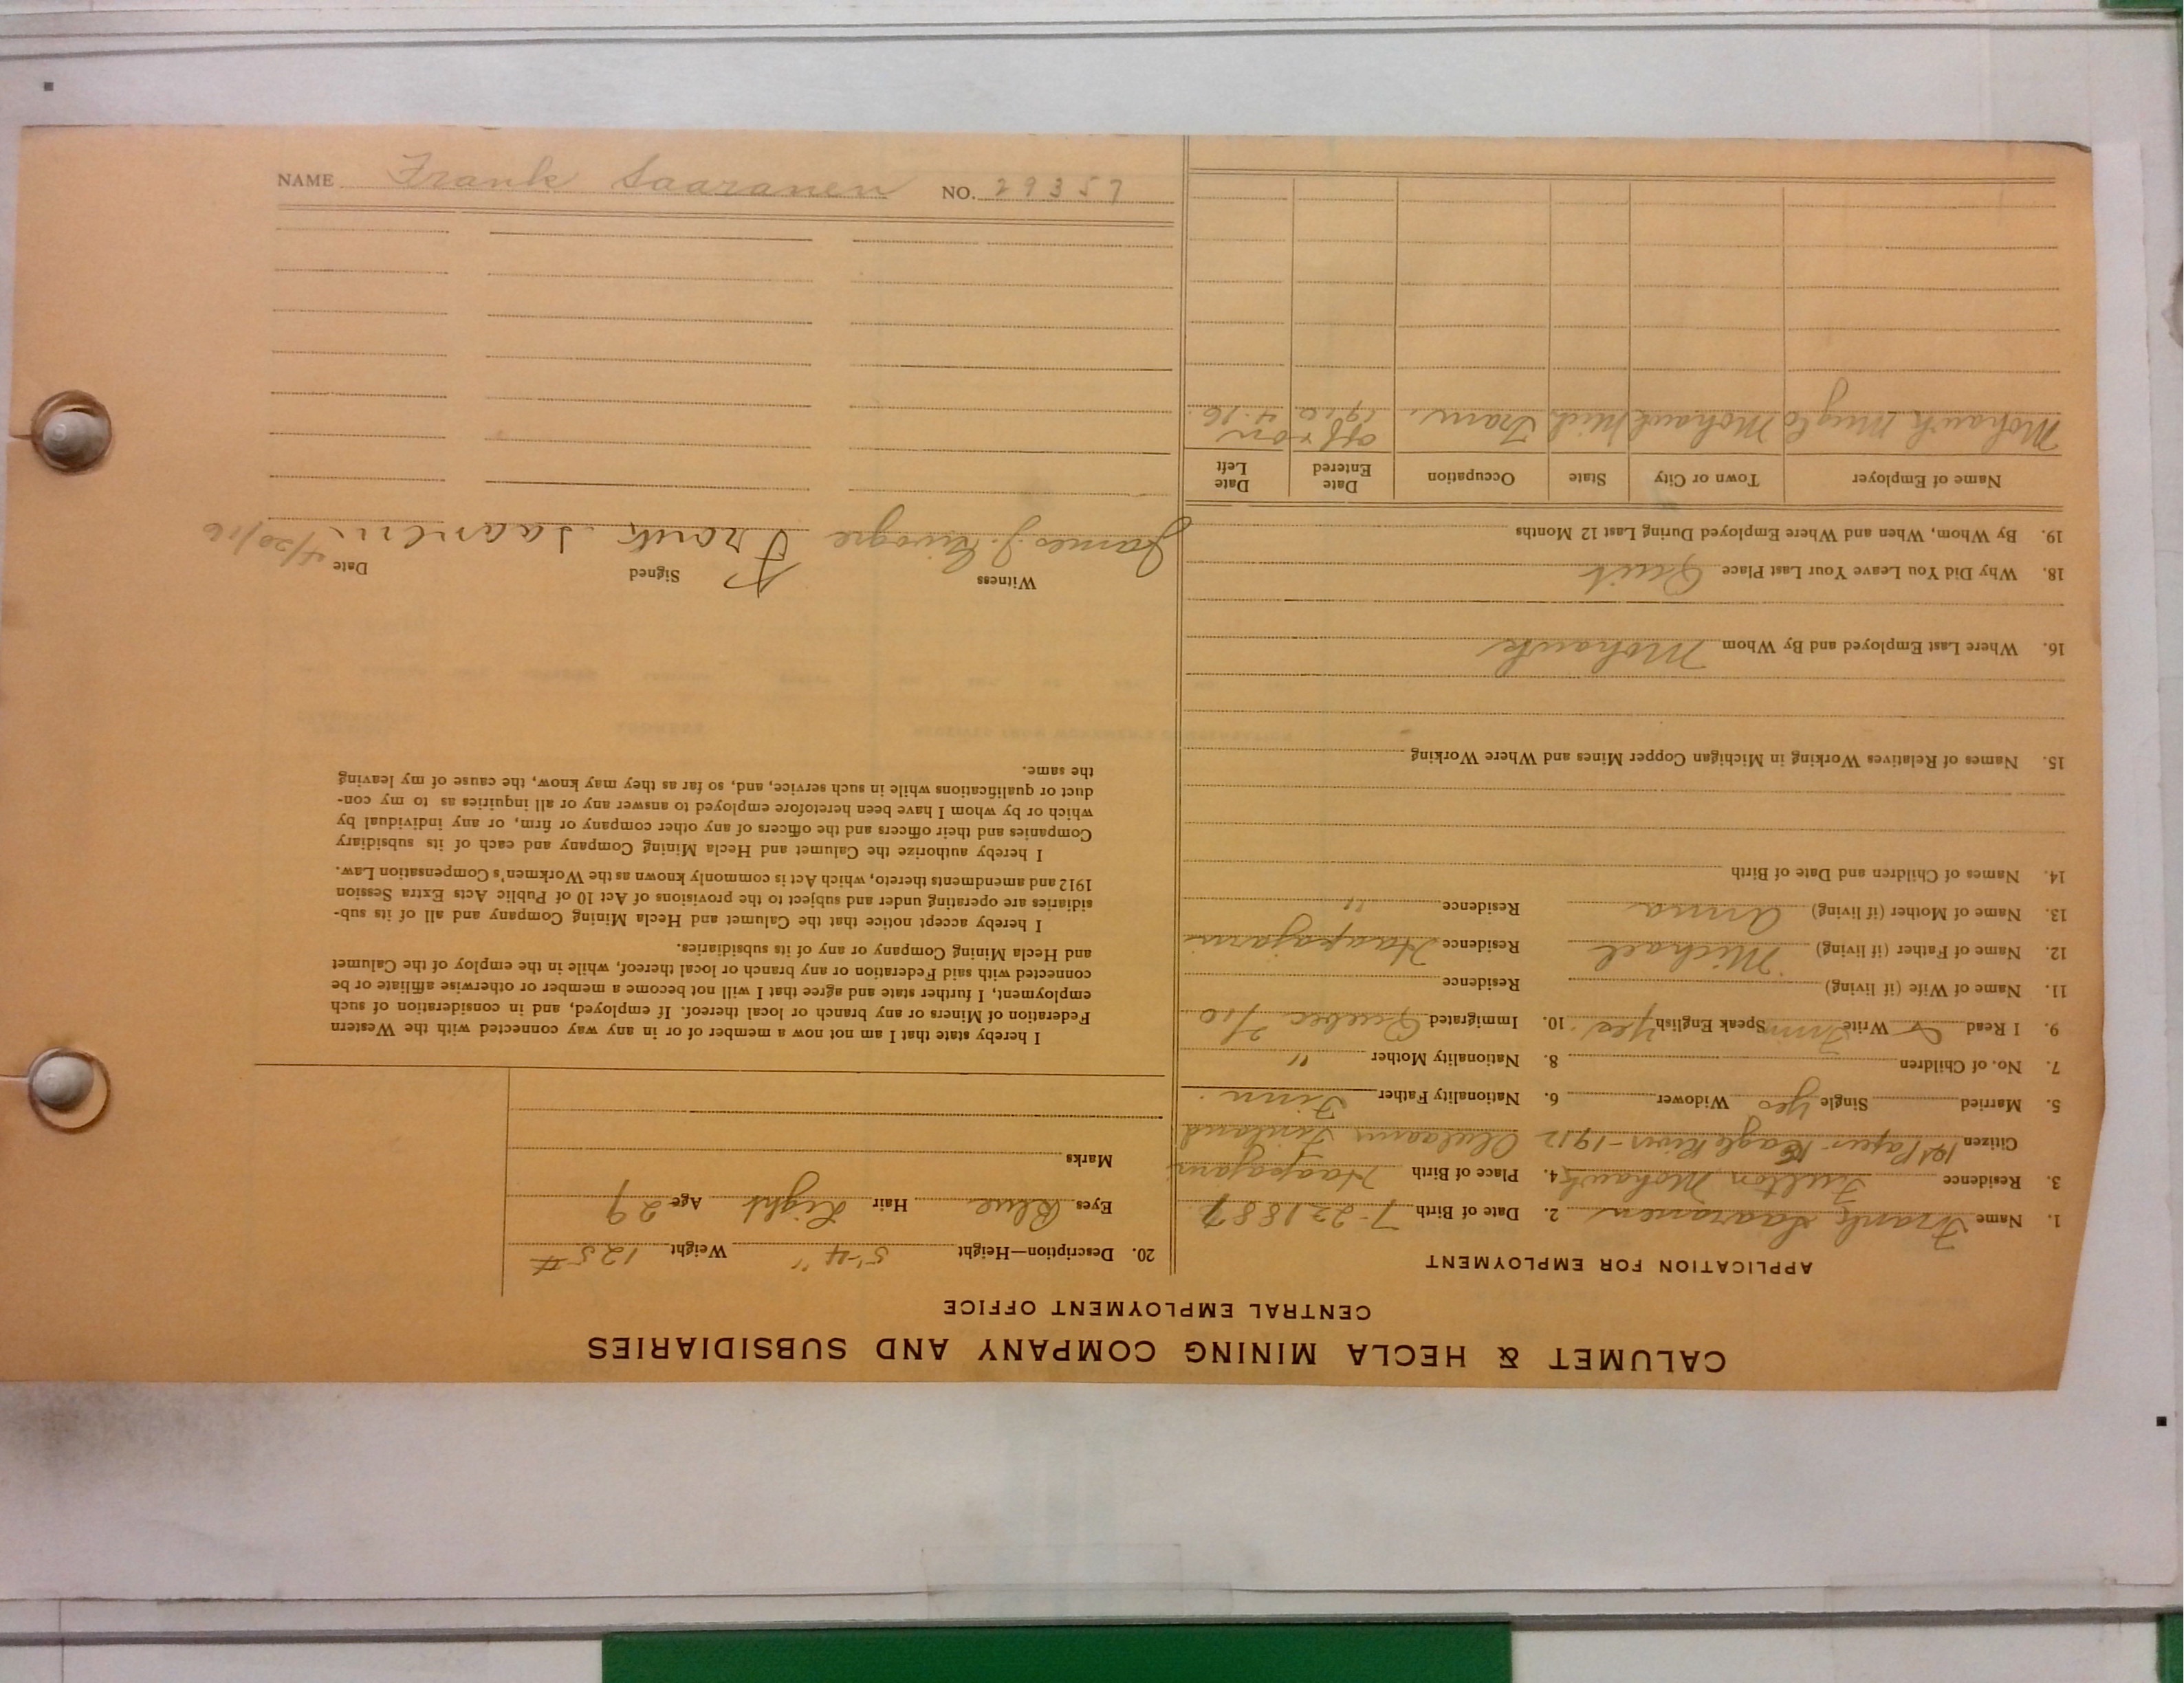 NAME Frank Saaranen NO. 29357
CALUMET & HECLA MINING COMPANY AND SUBSIDIARIES
CENTRAL EMPLOYMENT OFFICE
APPLICATION FOR EMPLOYMENT
1. Name Frank Saaranen 2. Date of Birth 7-23 1887
3. Residence Fulton Mohawk 4. Place of Birth Haapajarvi
Citizen 1st Paper Eagle River - 1912 Oulu Finland
5. Married Single Yes Widower 6. Nationality Father Finn
7. No. of Children 8. Nationality Mother "
9. I Read Write Finn Speak English Yes 10. Immigrated Quebec 2/10
11. Name of Wife (if living) Residence
12. Name of Father (if living) Michael Residence Haapajarvi
13. Name of Mother (if living) Anna Residence "
14. Names of Children and Date of Birth
15. Names of Relatives Working in Michigan Copper Mines and Where Working
16. Where Last Employed and By Whom Mohawk
18. Why Did You Leave Your Last Place Quit
19. By Whom, When and Where Employed During Last 12 Months
Name of Employer Town or City State Occupation Date Entered Date Left
off + on
Mohawk Mng Co Mohawk Mich Tram. 1910 4-16
20. Description—Height 5'-4" Weight 125 #
Eyes Blue Hair Light Age 29
Marks
I hereby state that I am not now a member of or in any way connected with the Western
Federation of Miners or any branch or local thereof. If employed, and in consideration of such
employment, I further state and agree that I will not become a member or otherwise affiliate or be
connected with said Federation or any branch or local thereof, while in the employ of the Calumet
and Hecla Mining Company or any of its subsidiaries.
I hereby accept notice that the Calumet and Hecla Mining Company and all of its sub-
sidiaries are operating under and subject to the provisions of Act 10 of Public Acts Extra Session
1912 and amendments thereto, which Act is commonly known as the Workmen's Compensation Law.
I hereby authorize the Calumet and Hecla Mining Company and each of its subsidiary
Companies and their officers and the officers of any other company or firm, or any individual by
which or by whom I have been heretofore employed to answer any or all inquiries as to my con-
duct or qualifications while in such service, and, so far as they may know, the cause of my leaving
the same.
Witness Signed Date
James J. Frank Saaranen 4/20/16